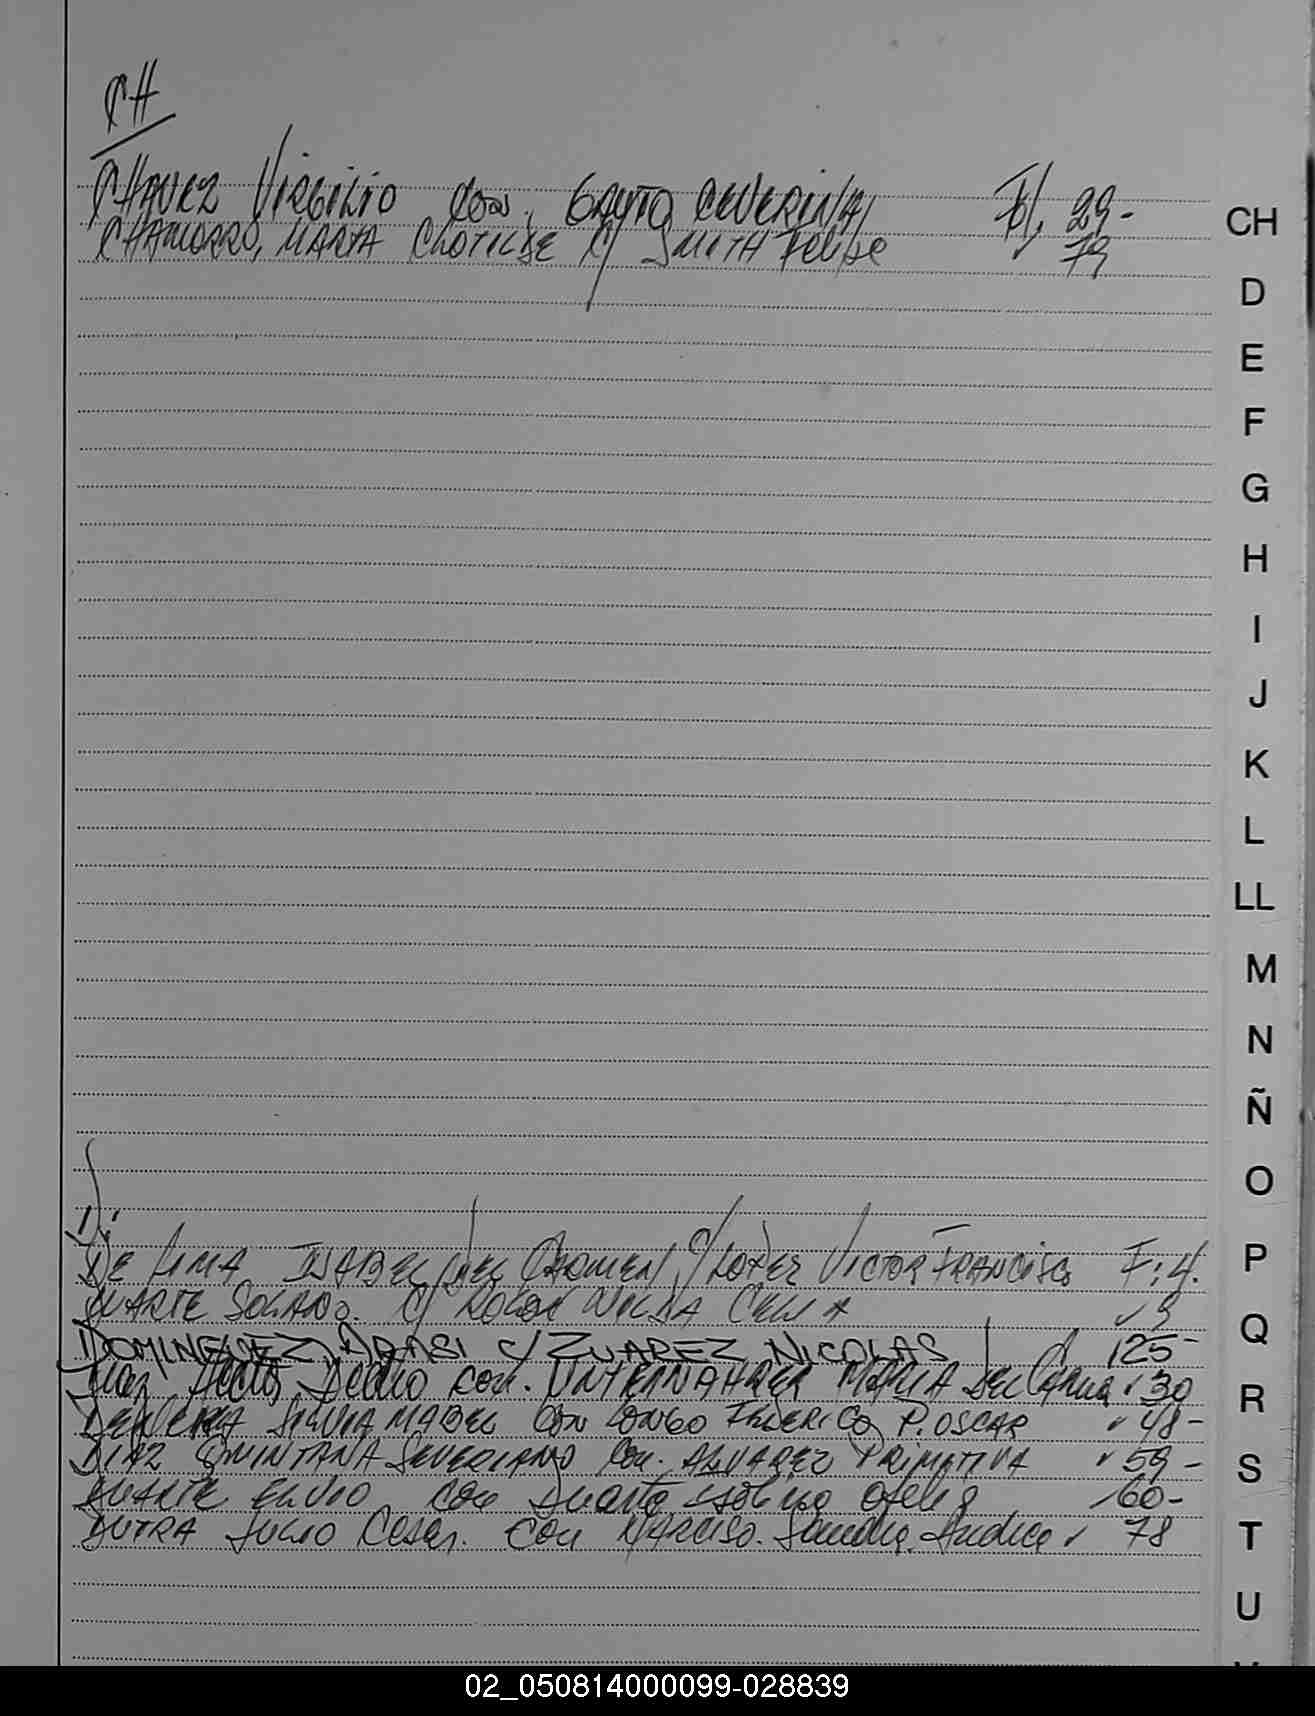 CH
CHAVEZ VIRGILIO con. CEVERINA Fol. 29-
CHAMORRO, MARTA CLOTILDE C/ SMITH FELIPE " 79
D:
DE LIMA ISABEL DEL CARMEN C/ LOPEZ VICTOR FRANCISCO F: 4.
DUARTE C/ NILDA CELIA " 9
DOMINGUEZ ARASI C/ ZUAREZ NICOLAS 125-
Pedro con. UNTERNAHRER MARIA DEL " 30
SILVIA MABEL CON LONGO FEDERICO P. OSCAR " 48-
DIAZ QUINTANA SEVERIANO Con. ALVAREZ PRIMITIVA " 59-
DUARTE ELVIO con Duarte Ofelia 60-
DUTRA JULIO Cesar. Con NARCISO. Sandra. " 78
CH
D
E
F
G
H
I
J
K
L
LL
M
N
Ñ
O
P
Q
R
S
T
U
02_050814000099-028839